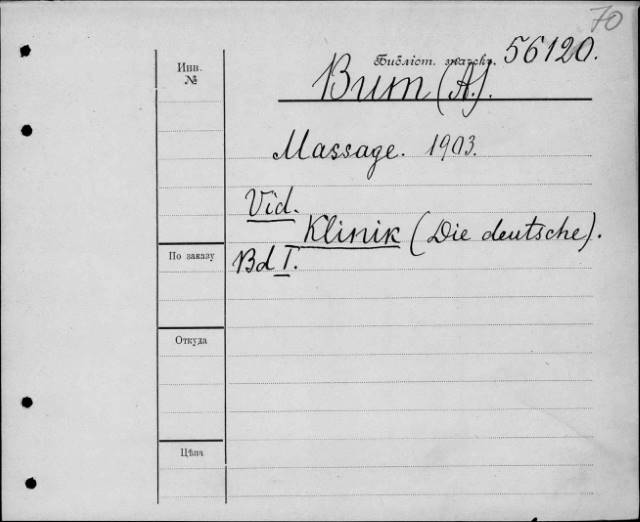 70
Библіот. значекъ. 56120.
Инв. №
Bum (A.).
Massage. 1903.
Vid.
Klinik (Die deutsche).
По заказу
Bd I.
Откуда
Цѣна